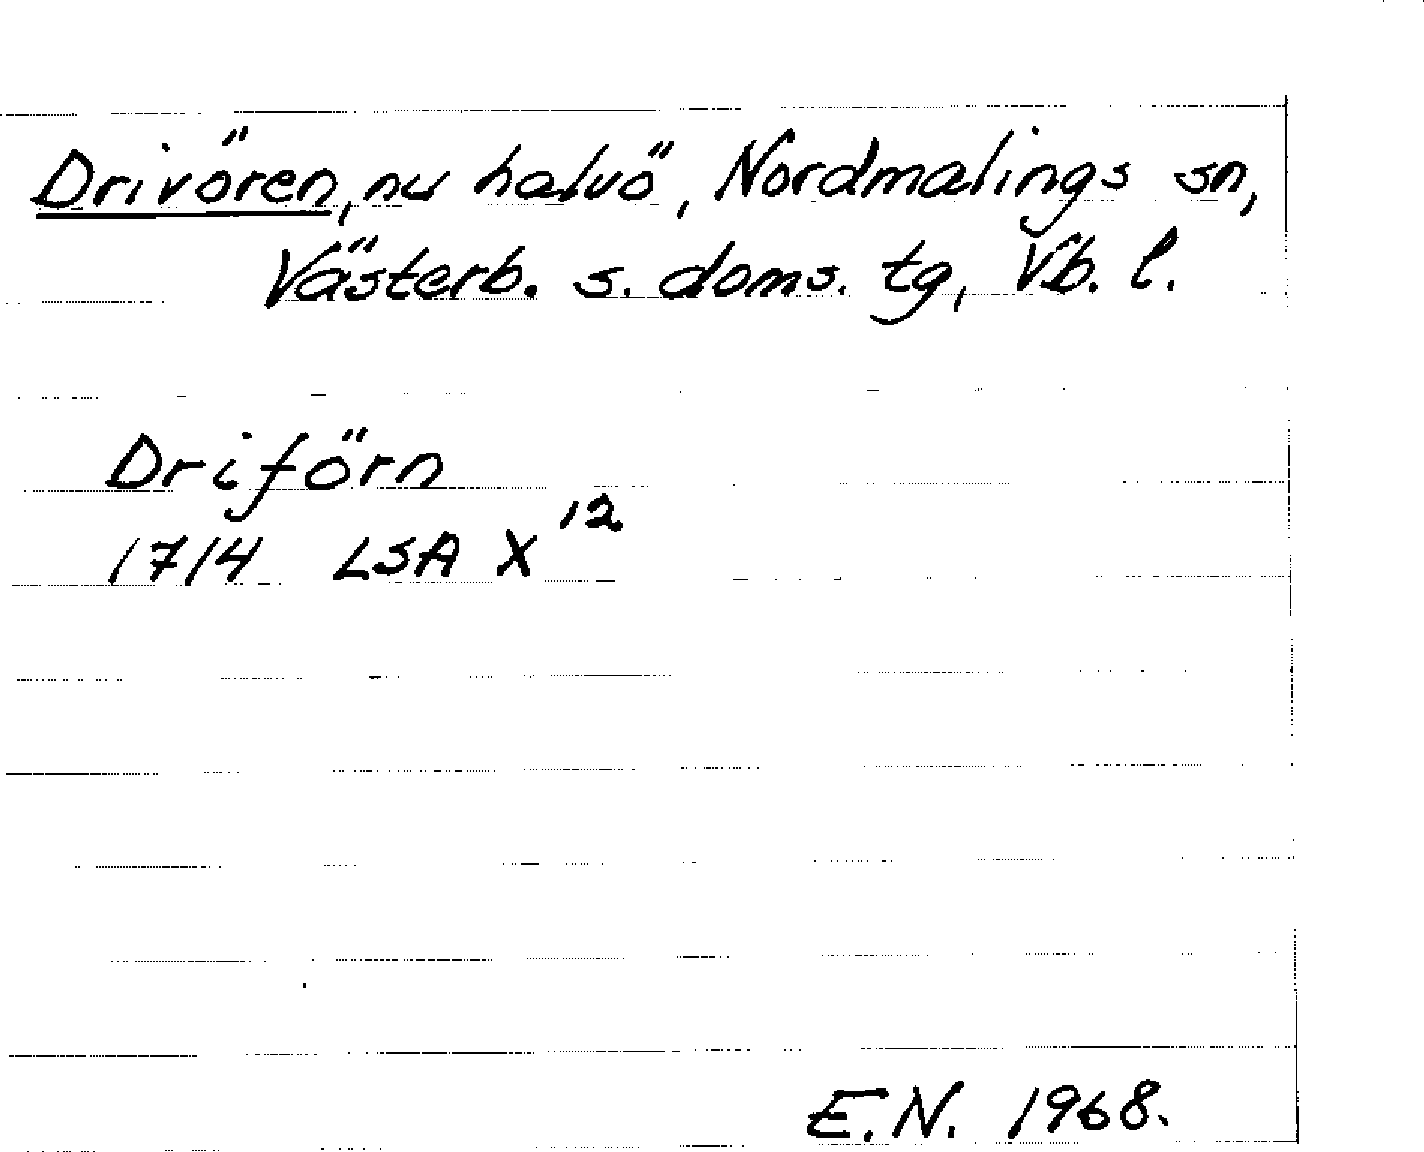 Drivören, nu halvö, Nordmalings sn,
Västerb. s. doms. tg, Vb. l.
Driförn
1714 LSA X¹²
E.N. 1968.